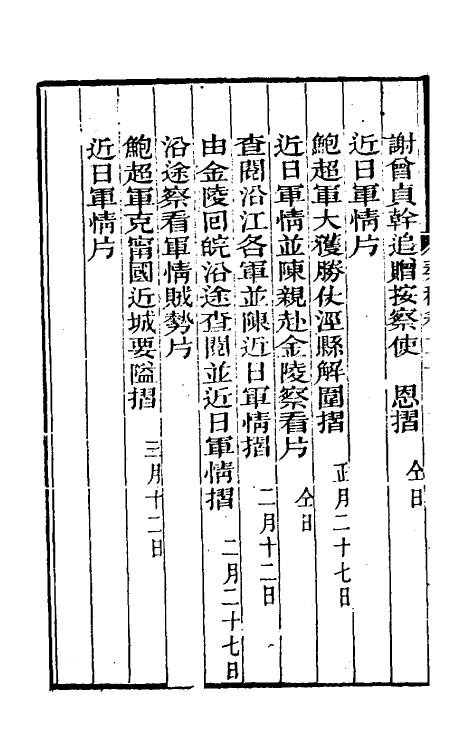 謝曾貞幹追贈按察使　恩摺　仝日
近日軍情片
鮑超軍大獲勝仗涇縣解圍摺　正月二十七日
近日軍情並陳親赴金陵察看片　仝日
查閱沿江各軍並陳近日軍情摺　二月十二日
由金陵回皖沿途查閱並近日軍情摺　二月二十七日
沿途察看軍情賊勢片
鮑超軍克甯國近城要隘摺　三月十二日
近日軍情片